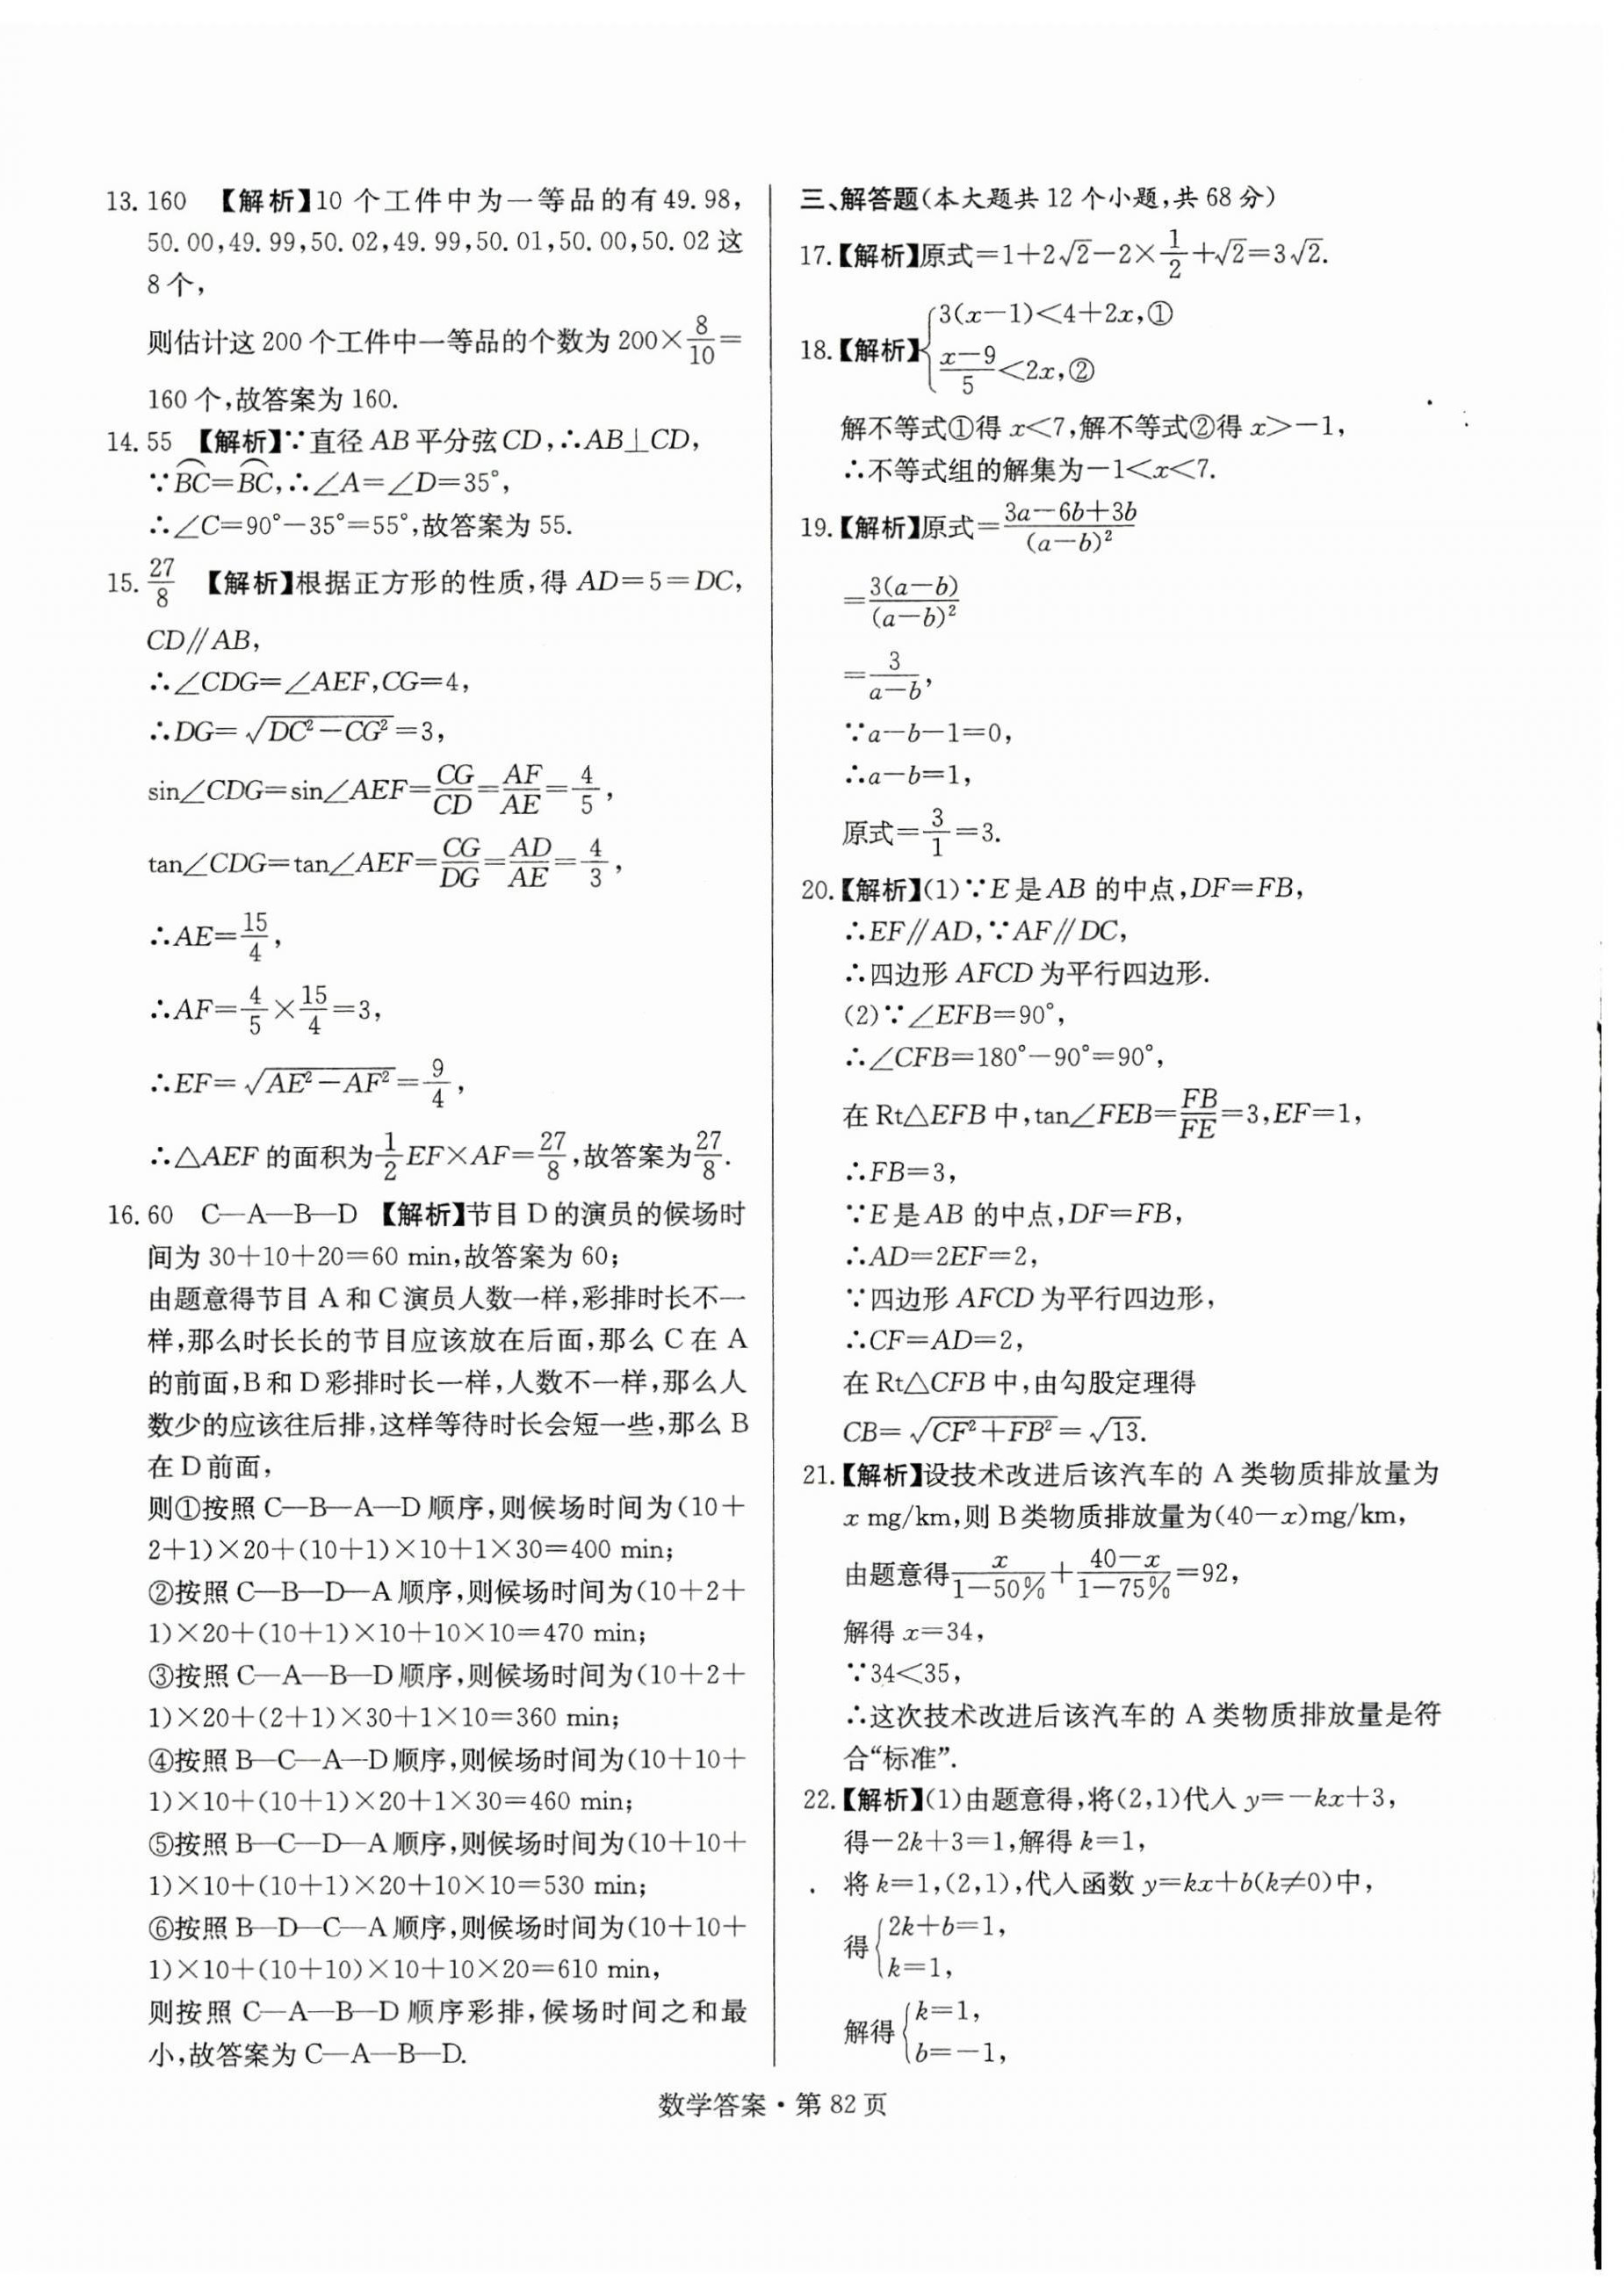 13. 160 【解析】10 个工件中为一等品的有49.98,
50.00,49.99,50.02,49.99,50.01,50.00,50.02 这
8个,
则估计这 200 个工件中一等品的个数为 200×8/10=
160 个,故答案为 160.
14. 55 【解析】∵直径 AB 平分弦 CD,∴AB⊥CD,
∵BC⌒=BC⌒,∴∠A=∠D=35°,
∴∠C=90°-35°=55°,故答案为 55.
15. 27/8 【解析】根据正方形的性质,得 AD=5=DC,
CD∥AB,
∴∠CDG=∠AEF,CG=4,
∴DG=√(DC²-CG²)=3,
sin∠CDG=sin∠AEF=CG/CD=AF/AE=4/5,
tan∠CDG=tan∠AEF=CG/DG=AD/AE=4/3,
∴AE=15/4,
∴AF=4/5×15/4=3,
∴EF=√(AE²-AF²)=9/4,
∴△AEF 的面积为1/2EF×AF=27/8,故答案为27/8.
16. 60 C—A—B—D 【解析】节目 D 的演员的候场时
间为 30+10+20=60 min,故答案为 60;
由题意得节目 A 和 C 演员人数一样,彩排时长不一
样,那么时长长的节目应该放在后面,那么 C 在 A
的前面,B 和 D 彩排时长一样,人数不一样,那么人
数少的应该往后排,这样等待时长会短一些,那么 B
在 D 前面,
则①按照 C—B—A—D 顺序,则候场时间为(10+
2+1)×20+(10+1)×10+1×30=400 min;
②按照 C—B—D—A 顺序,则候场时间为(10+2+
1)×20+(10+1)×10+10×10=470 min;
③按照 C—A—B—D 顺序,则候场时间为(10+2+
1)×20+(2+1)×30+1×10=360 min;
④按照 B—C—A—D 顺序,则候场时间为(10+10+
1)×10+(10+1)×20+1×30=460 min;
⑤按照 B—C—D—A 顺序,则候场时间为(10+10+
1)×10+(10+1)×20+10×10=530 min;
⑥按照 B—D—C—A 顺序,则候场时间为(10+10+
1)×10+(10+10)×10+10×20=610 min,
则按照 C—A—B—D 顺序彩排,候场时间之和最
小,故答案为 C—A—B—D.
三、解答题(本大题共 12 个小题,共 68 分)
17.【解析】原式=1+2√2-2×1/2+√2=3√2.
18.【解析】{3(x-1)<4+2x,①
(x-9)/5<2x,②
解不等式①得 x<7,解不等式②得 x>-1,
∴不等式组的解集为-1<x<7.
19.【解析】原式=(3a-6b+3b)/(a-b)²
=3(a-b)/(a-b)²
=3/(a-b),
∵a-b-1=0,
∴a-b=1,
原式=3/1=3.
20.【解析】(1)∵E 是 AB 的中点,DF=FB,
∴EF∥AD,∵AF∥DC,
∴四边形 AFCD 为平行四边形.
(2)∵∠EFB=90°,
∴∠CFB=180°-90°=90°,
在 Rt△EFB 中,tan∠FEB=FB/FE=3,EF=1,
∴FB=3,
∵E 是 AB 的中点,DF=FB,
∴AD=2EF=2,
∵四边形 AFCD 为平行四边形,
∴CF=AD=2,
在 Rt△CFB 中,由勾股定理得
CB=√(CF²+FB²)=√13.
21.【解析】设技术改进后该汽车的 A 类物质排放量为
x mg/km,则 B 类物质排放量为(40-x)mg/km,
由题意得x/(1-50%)+(40-x)/(1-75%)=92,
解得 x=34,
∵34<35,
∴这次技术改进后该汽车的 A 类物质排放量是符
合“标准”.
22.【解析】(1)由题意得,将(2,1)代入 y=-kx+3,
得-2k+3=1,解得 k=1,
将 k=1,(2,1),代入函数 y=kx+b(k≠0)中,
得{2k+b=1,
k=1,
解得{k=1,
b=-1,
数学答案·第 82 页